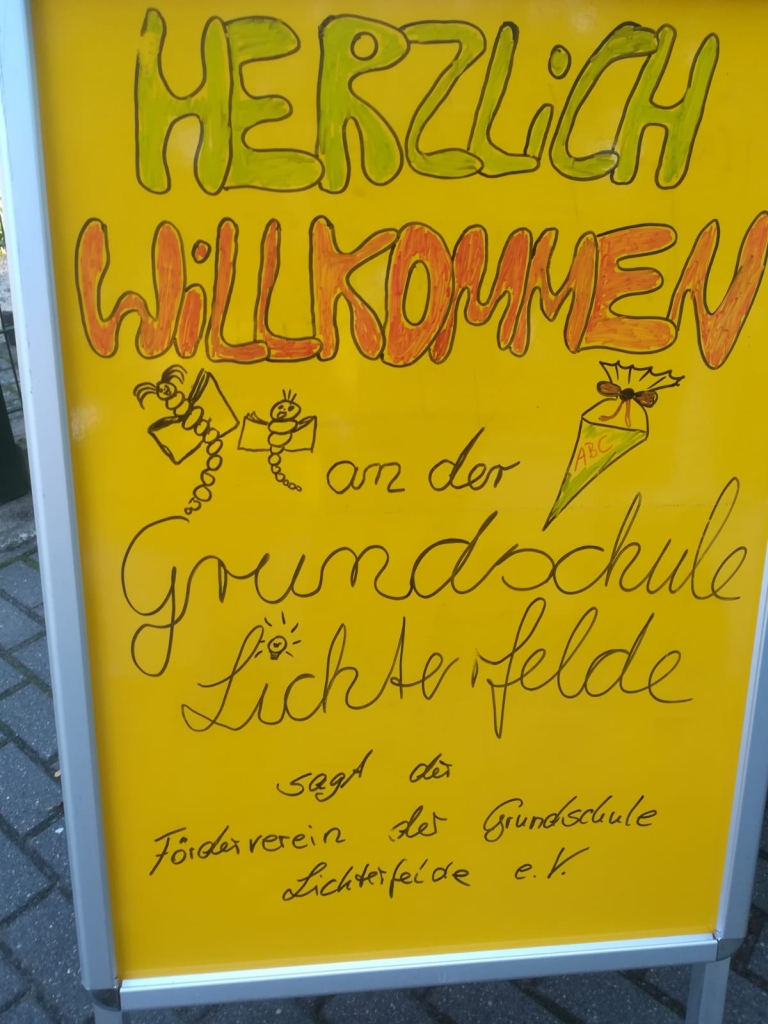 HERZLiCH
WiLLKOMMEN
an der
ABC
Grundschule
Lichterfelde
sagt der
Förderverein der Grundschule
Lichterfelde e.V.